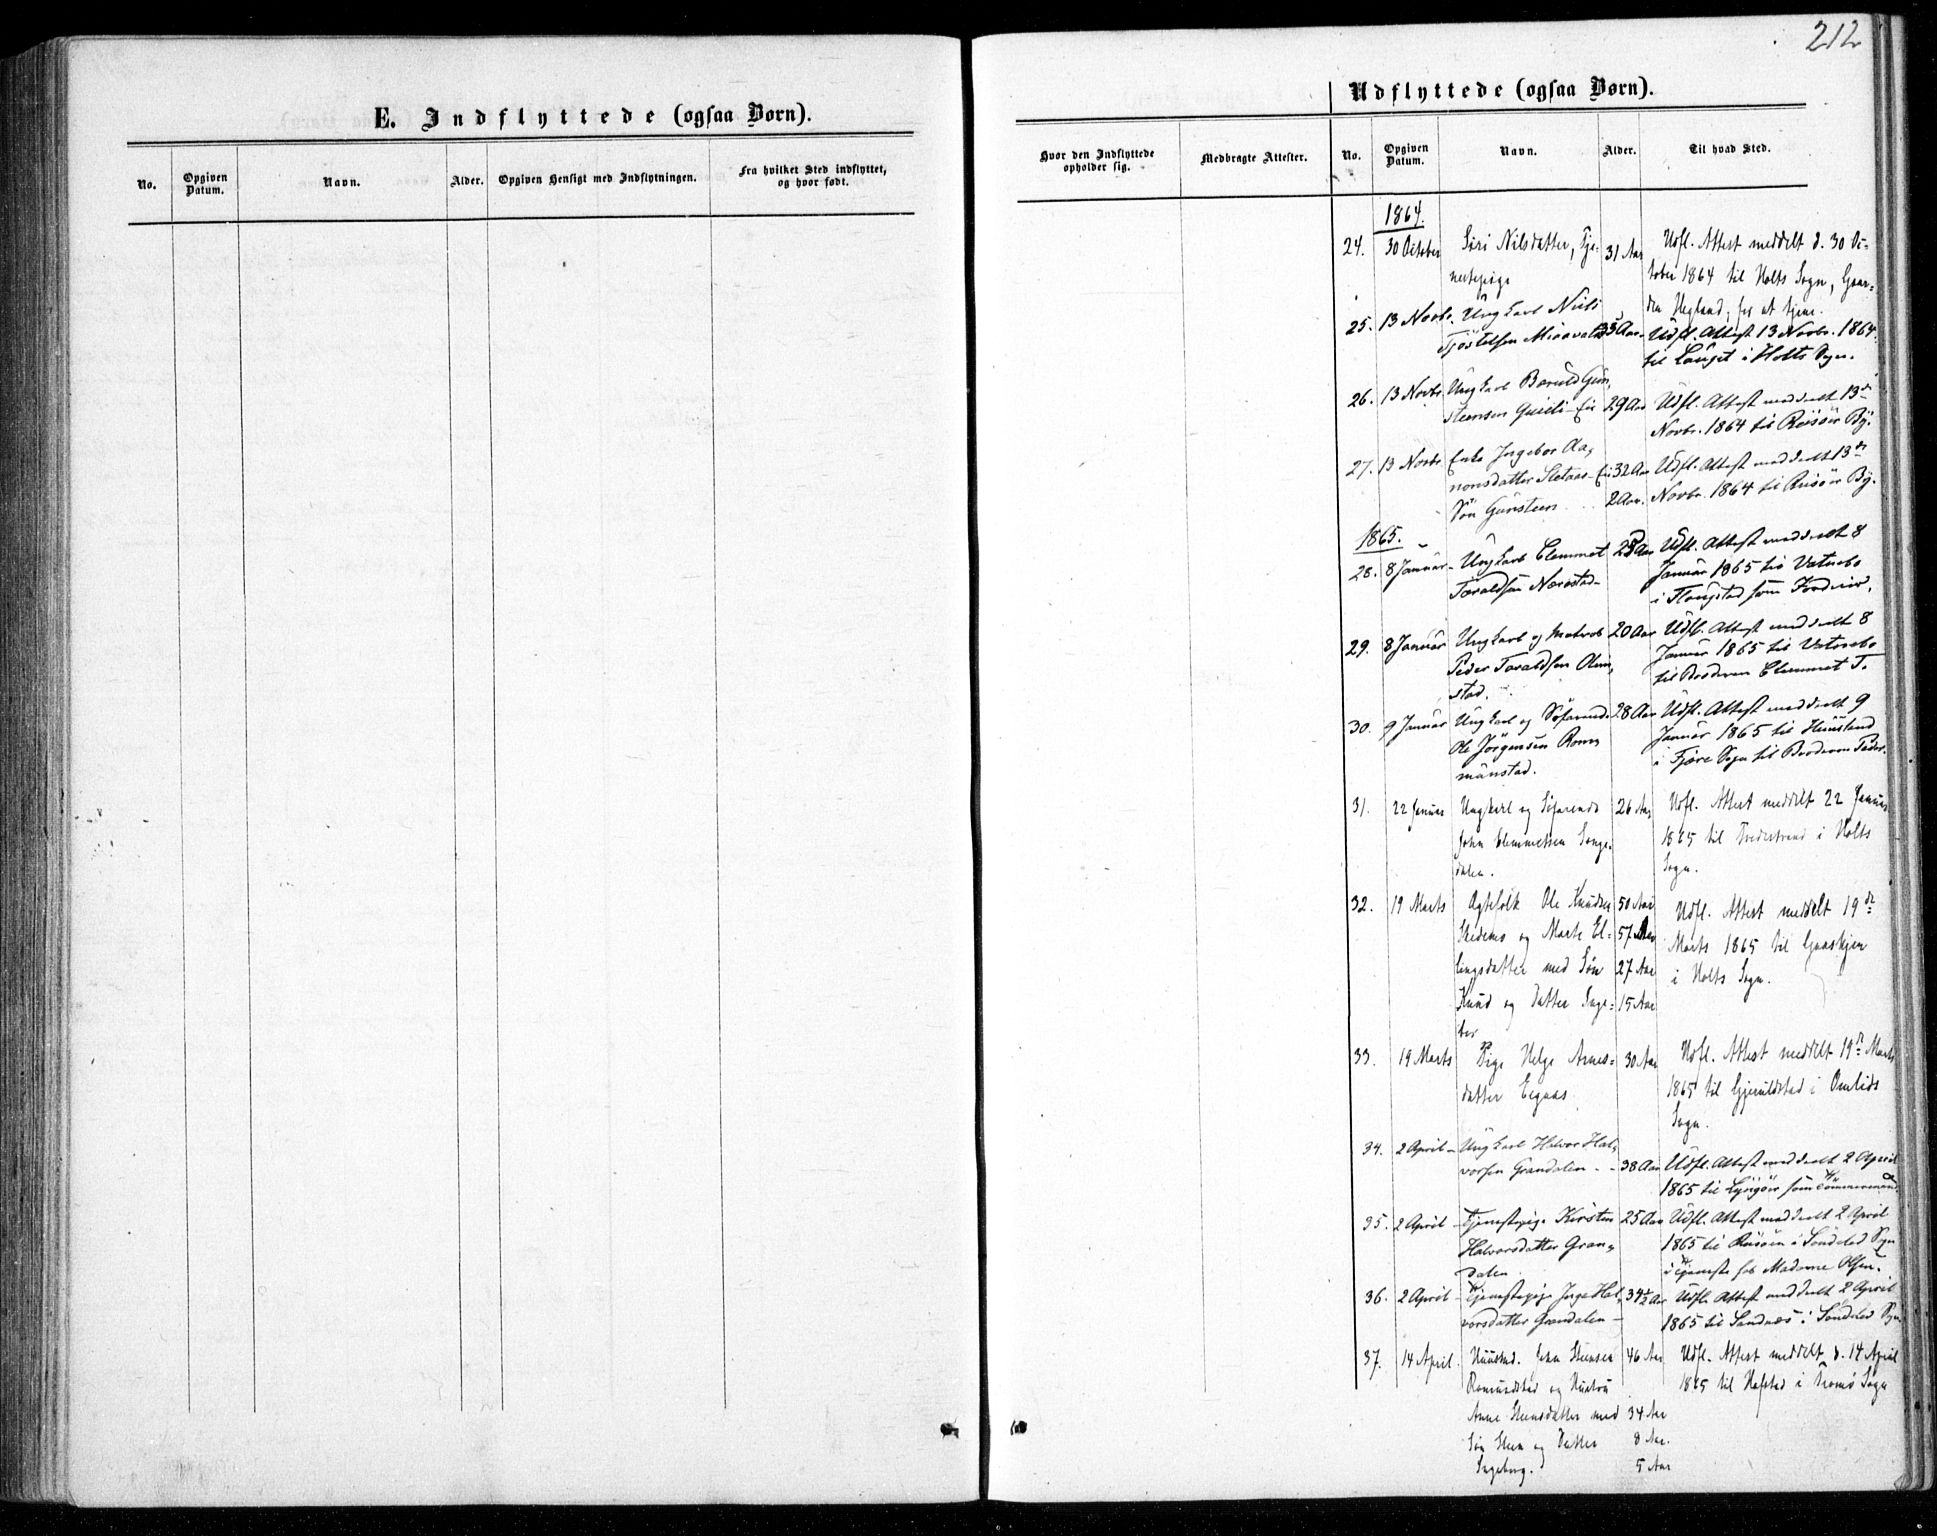 212
E. Indflyttede (ogsaa Børn).
No.
Opgiven Datum.
Navn.
Alder.
Opgiven Hensigt med Indflytningen.
Fra hvilket Sted indflyttet, og hvor født.
Udflyttede (ogsaa Børn).
Hvor den Indflyttede opholder sig.
Medbragte Attester.
No.
Opgiven Datum.
Navn.
Alder.
Til hvad Sted.
1864.
24. 30 October Siri Nilsdatter, Tje- 31 Aar Udfl. Attest meddelt d. 30 Oc-
nestepige tober 1864 til Holts Sogn, Gaar-
den Hegland, for at tjene.
25. 13 Novbr. Ungkarl Niels 33 Aar Udfl. Attest 13 Novbr. 1864
Tjøstelsen til i Holts Sogn.
26. 13 Novbr. Ungkarl Gun- 29 Aar Udfl. Attest meddeelt 13de
steensen Novbr. 1864 til Riisöer By.
27. 13 Novbr Enke Ingebor Aa- 32 Aar Udfl. Attest meddeelt 13de
nonsdatter 2 Aar. Novbr. 1864 til Riisöer By.
Sön Gunsteen
1865.
28. 8 Januar Ungkarl Clemmet Aar Udfl. Attest meddeelt 8
Taraldsen Januar 1865 til Vatnebo
i som
29. 8 Januar Ungkarl og Matros 20 Aar Udfl. Attest meddeelt 8
Peder Taraldsen Januar 1865 til Vatnebo
stad. til Broderen Clemmet T.
30. 9 Januar Ungkarl og Söfarende 28 Aar Udfl. Attest meddeelt 9
Ole Jörgensen Rom- Januar 1865 til
undstad. i Fjære Sogn til Broderen Peder.
31. 22 Januar Ungkarl og Söfarende 26 Aar Udfl. Attest meddelt 22 Januar
John Clemmetsen Songe- 1865 til Tvedestrand i Holts
dalen. Sogn.
32. 19 Marts Ægtefolk Ole Knudsen 50 Aar Udfl. Attest meddelt 19de
og Marte El- 57 Aar Marts 1865 til
lingsdatter med Søn 27 Aar i Holts Sogn.
Knud og Datter Inge- 15 Aar
bor
33. 19 Marts Pige Helge Arnes- 30 Aar Udfl. Attest meddelt 19de Marts
datter 1865 til i Omlids
Sogn.
34. 2 April Ungkarl Halvor Hal-
vorsen Grandalen 38 Aar Udfl. Attest meddeelt 2 April
1865 til Lyngör som Tömmermand
35. 2 April Tjenestepige Kirsten 25 Aar Udfl. Attest meddeelt 2 April
Halvorsdatter Gran- 1865 til i Söndeled Sogn
dalen i Tjeneste hos Madame Olsen.
36. 2 April Tjenestepige Inge Hal- 34½ Aar Udfl. Attest meddeelt 2 April
vorsdatter Grandalen 1865 til Sandnæs i Söndeled Sogn
37. 14 April. Huusmd. John Steensen 46 Aar Udfl. Attest meddelt d. 14 April
Romundstad og Hustru 1865 til Hofstad i Tromö Sogn
Anne Steensdatter med 34 Aar
Søn Steen og Datter 8 Aar.
Ingeborg. 5 Aar